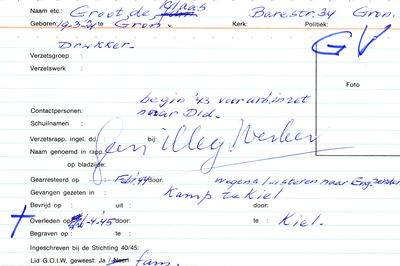 Naam etc.: Groot, de Klaas Barestr. 34 Gron.
Geboren: 19-3-24 te Gron. Kerk: Politiek:
Drukker. GV
Verzetsgroep :
Verzetswerk :
Foto
begin '43 voor arb. inzet
Contactpersonen: naar Did.
Schuilnaam :
Verzetsrapp. ingel. dd. bij:
Naam genoemd in rapp.
Geen illeg. Werker
op bladzijde:
Gearresteerd op : Febr. '44 door: wegens luisteren naar Eng. zender
Gevangen gezeten in : Kamp te Kiel
Bevrijd op : uit : door:
Overleden op : -4-'45 door: te : Kiel.
Begraven op : te :
Ingeschreven bij de Stichting 40/45:
Lid G.O.I.W. geweest: Ja / Neen fam.